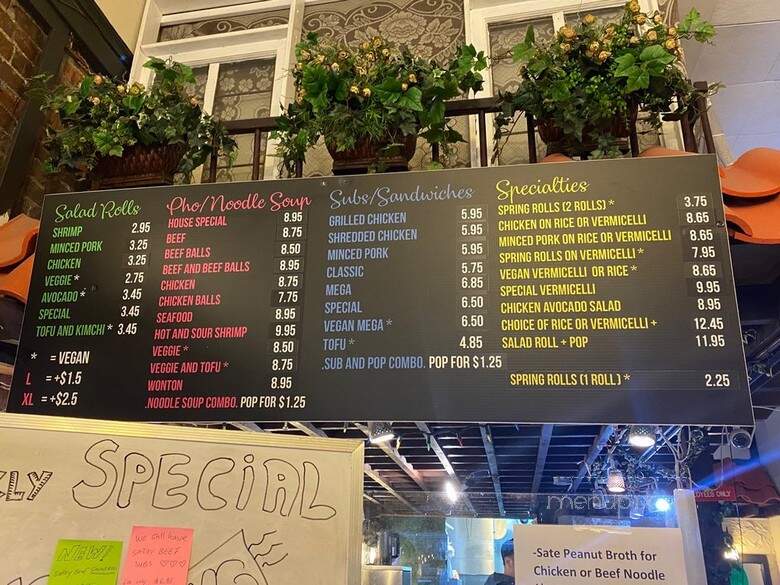 Salad Rolls
SHRIMP 2.95
MINCED PORK 3.25
CHICKEN 3.25
VEGGIE * 2.75
AVOCADO * 3.45
SPECIAL 3.45
TOFU AND KIMCHI * 3.45
* = VEGAN
L = +$1.5
XL = +$2.5
Pho/Noodle Soup
HOUSE SPECIAL 8.95
BEEF 8.75
BEEF BALLS 8.50
BEEF AND BEEF BALLS 8.95
CHICKEN 8.75
CHICKEN BALLS 7.75
SEAFOOD 8.95
HOT AND SOUR SHRIMP 9.95
VEGGIE * 8.50
VEGGIE AND TOFU * 8.75
WONTON 8.95
.NOODLE SOUP COMBO. POP FOR $1.25
Subs/Sandwiches
GRILLED CHICKEN 5.95
SHREDDED CHICKEN 5.95
MINCED PORK 5.95
CLASSIC 5.75
MEGA 6.85
SPECIAL 6.50
VEGAN MEGA * 6.50
TOFU * 4.85
.SUB AND POP COMBO. POP FOR $1.25
Specialties
SPRING ROLLS (2 ROLLS) * 3.75
CHICKEN ON RICE OR VERMICELLI 8.65
MINCED PORK ON RICE OR VERMICELLI 8.65
SPRING ROLLS ON VERMICELLI * 7.95
VEGAN VERMICELLI OR RICE * 8.65
SPECIAL VERMICELLI 9.95
CHICKEN AVOCADO SALAD 8.95
CHOICE OF RICE OR VERMICELLI + 12.45
SALAD ROLL + POP 11.95
SPRING ROLLS (1 ROLL) * 2.25
SPECIAL
NEW!
We all have
SATAY BEEF
SUBS
-Sate Peanut Broth for
Chicken or Beef Noodle
EES ONLY